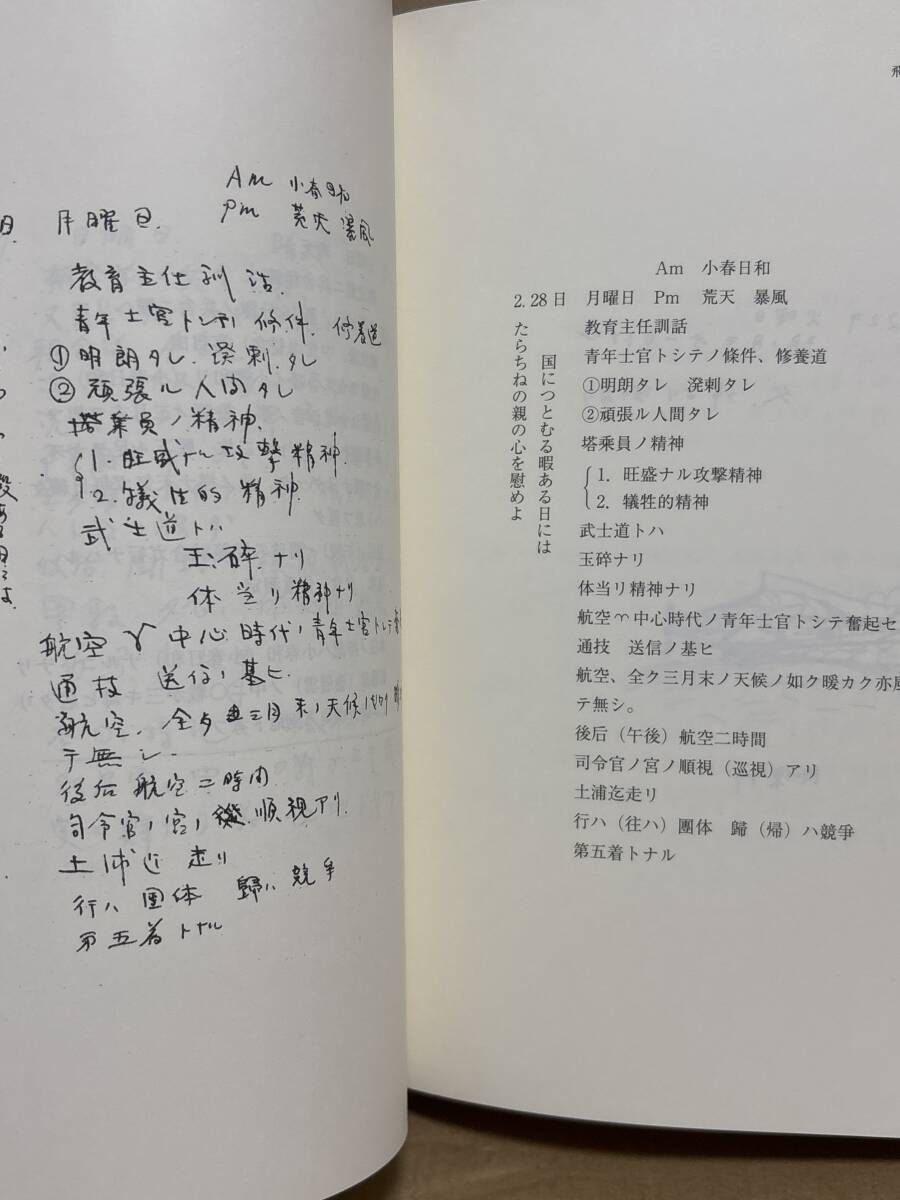 Am 小春日和
日 月曜日 Pm 荒天 暴風
教育主任訓話
青年士官トシテノ條件、修養道
①明朗タレ 溌剌タレ
②頑張ル人間タレ
搭乗員ノ精神
1. 旺盛ナル攻撃精神
2. 犠牲的精神
武士道トハ
玉砕ナリ
体当リ精神ナリ
航空ヶ中心時代ノ青年士官トシテ奮
通技 送信ノ基ヒ
航空、全ク三月末ノ天候ノ如ク
テ無シ
後后 航空二時間
司令官ノ宮ノ順視アリ
土浦迄走リ
行ハ團体 歸ハ競争
第五着トナル
飛
Am 小春日和
2.28日 月曜日 Pm 荒天 暴風
教育主任訓話
青年士官トシテノ條件、修養道
①明朗タレ 溌剌タレ
②頑張ル人間タレ
塔乗員ノ精神
1. 旺盛ナル攻撃精神
2. 犠牲的精神
武士道トハ
玉砕ナリ
体当リ精神ナリ
航空ヶ中心時代ノ青年士官トシテ奮起セ
通技 送信ノ基ヒ
航空、全ク三月末ノ天候ノ如ク暖カク亦風
テ無シ。
後后（午後）航空二時間
司令官ノ宮ノ順視（巡視）アリ
土浦迄走リ
行ハ（往ハ）團体 歸（帰）ハ競爭
第五着トナル
国につとむる暇ある日には
たらちねの親の心を慰めよ